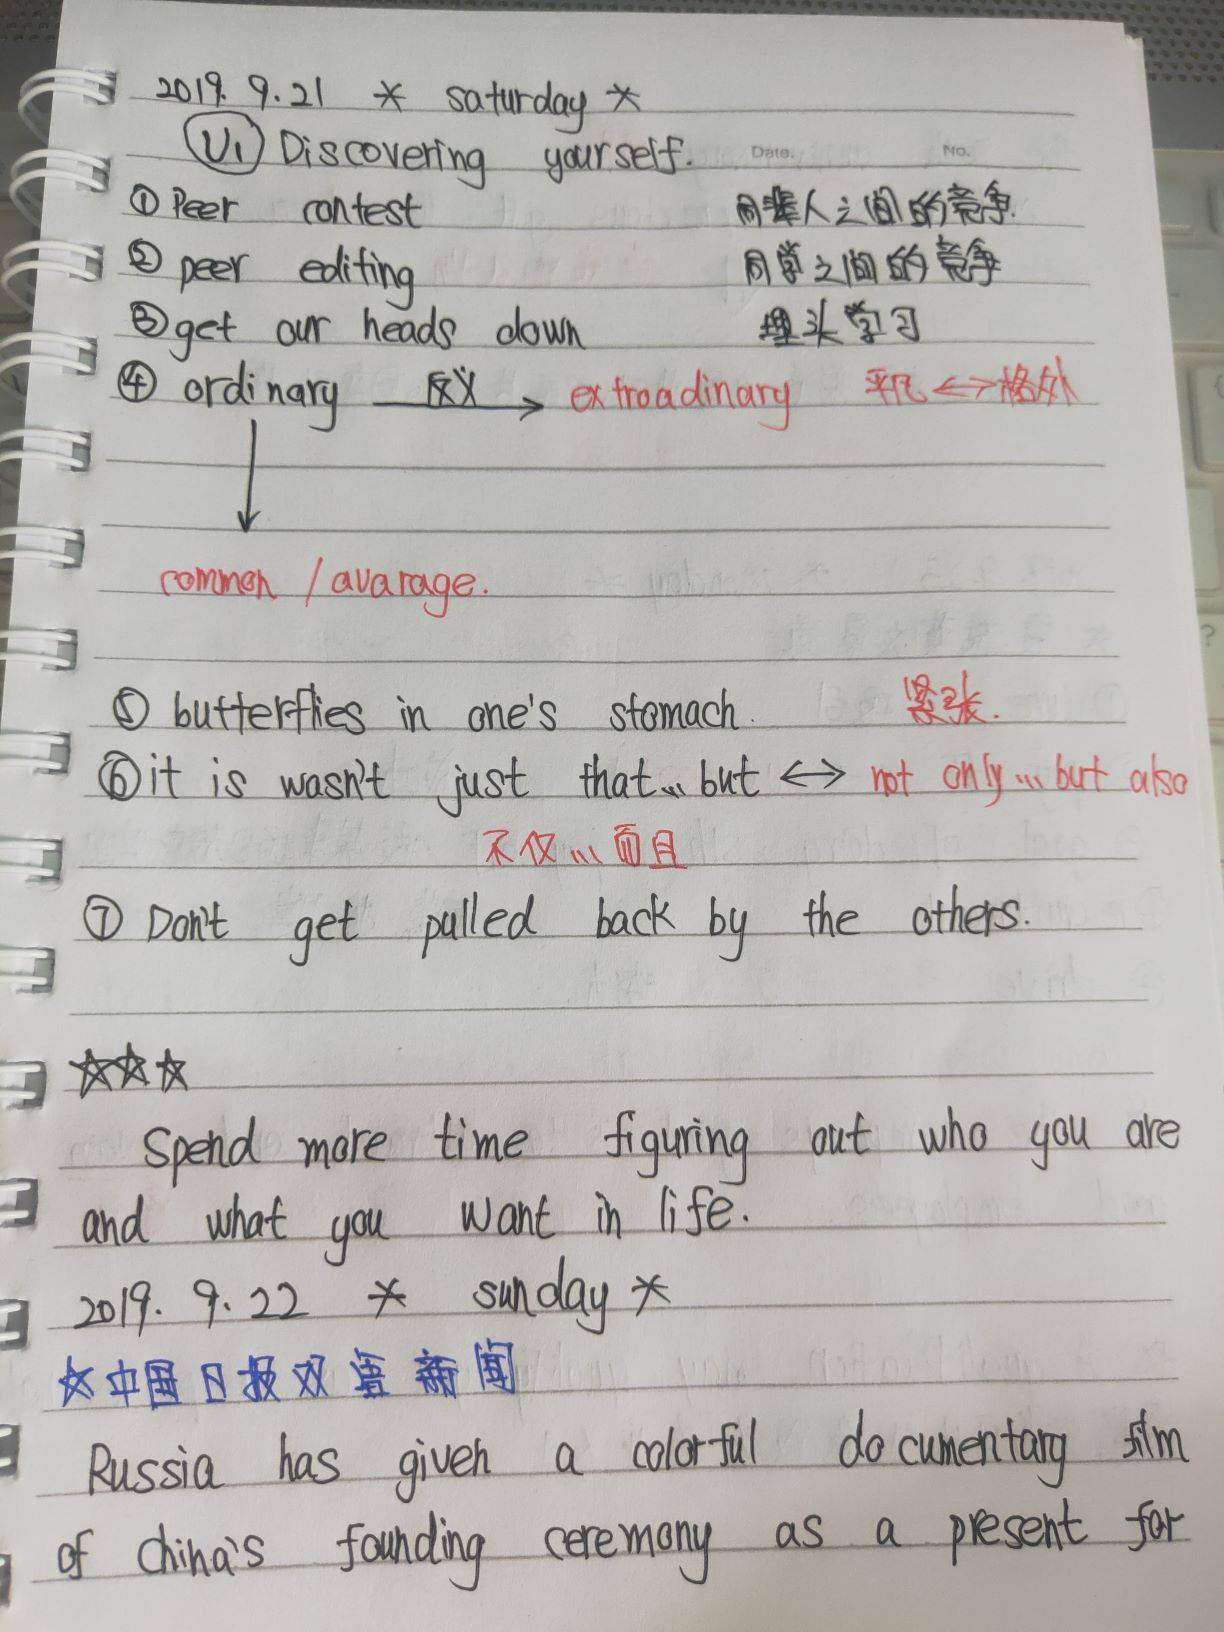 2019. 9.21 * saturday *
U1 Discovering yourself.
Date. No.
① Peer contest 同辈人之间的竞争.
② peer editing 同学之间的竞争
③ get our heads down 埋头学习
④ ordinary 反义 extroadinary 平凡 <-> 格外
common / avarage.
⑤ butterflies in one's stomach. 紧张.
⑥ it is wasn't just that... but <-> not only ... but also
不仅... 而且
⑦ Don't get pulled back by the others.
☆☆☆
Spend more time figuring out who you are
and what you want in life.
2019. 9. 22 * sunday *
☆中国日报双语新闻
Russia has given a colorful documentary film
of China's founding ceremony as a present for